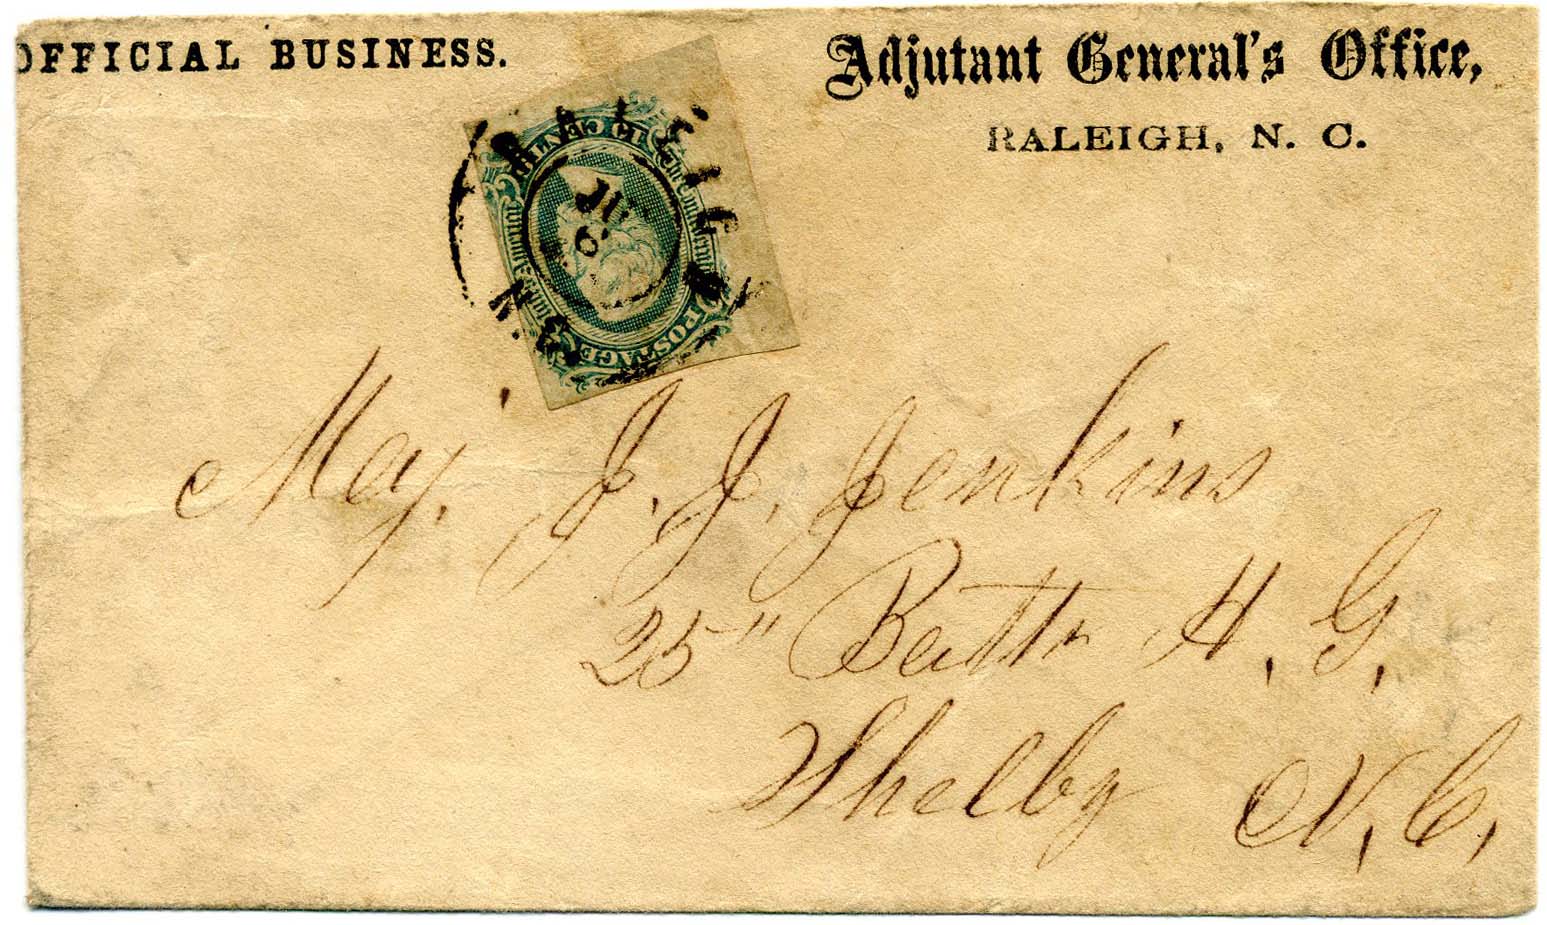 OFFICIAL BUSINESS.
Adjutant General's Office,
RALEIGH, N. C.
RALEIGH
N. C.
POSTAGE
Maj. J. J. Jenkins
25" Battn H. G.
Shelby N. C.